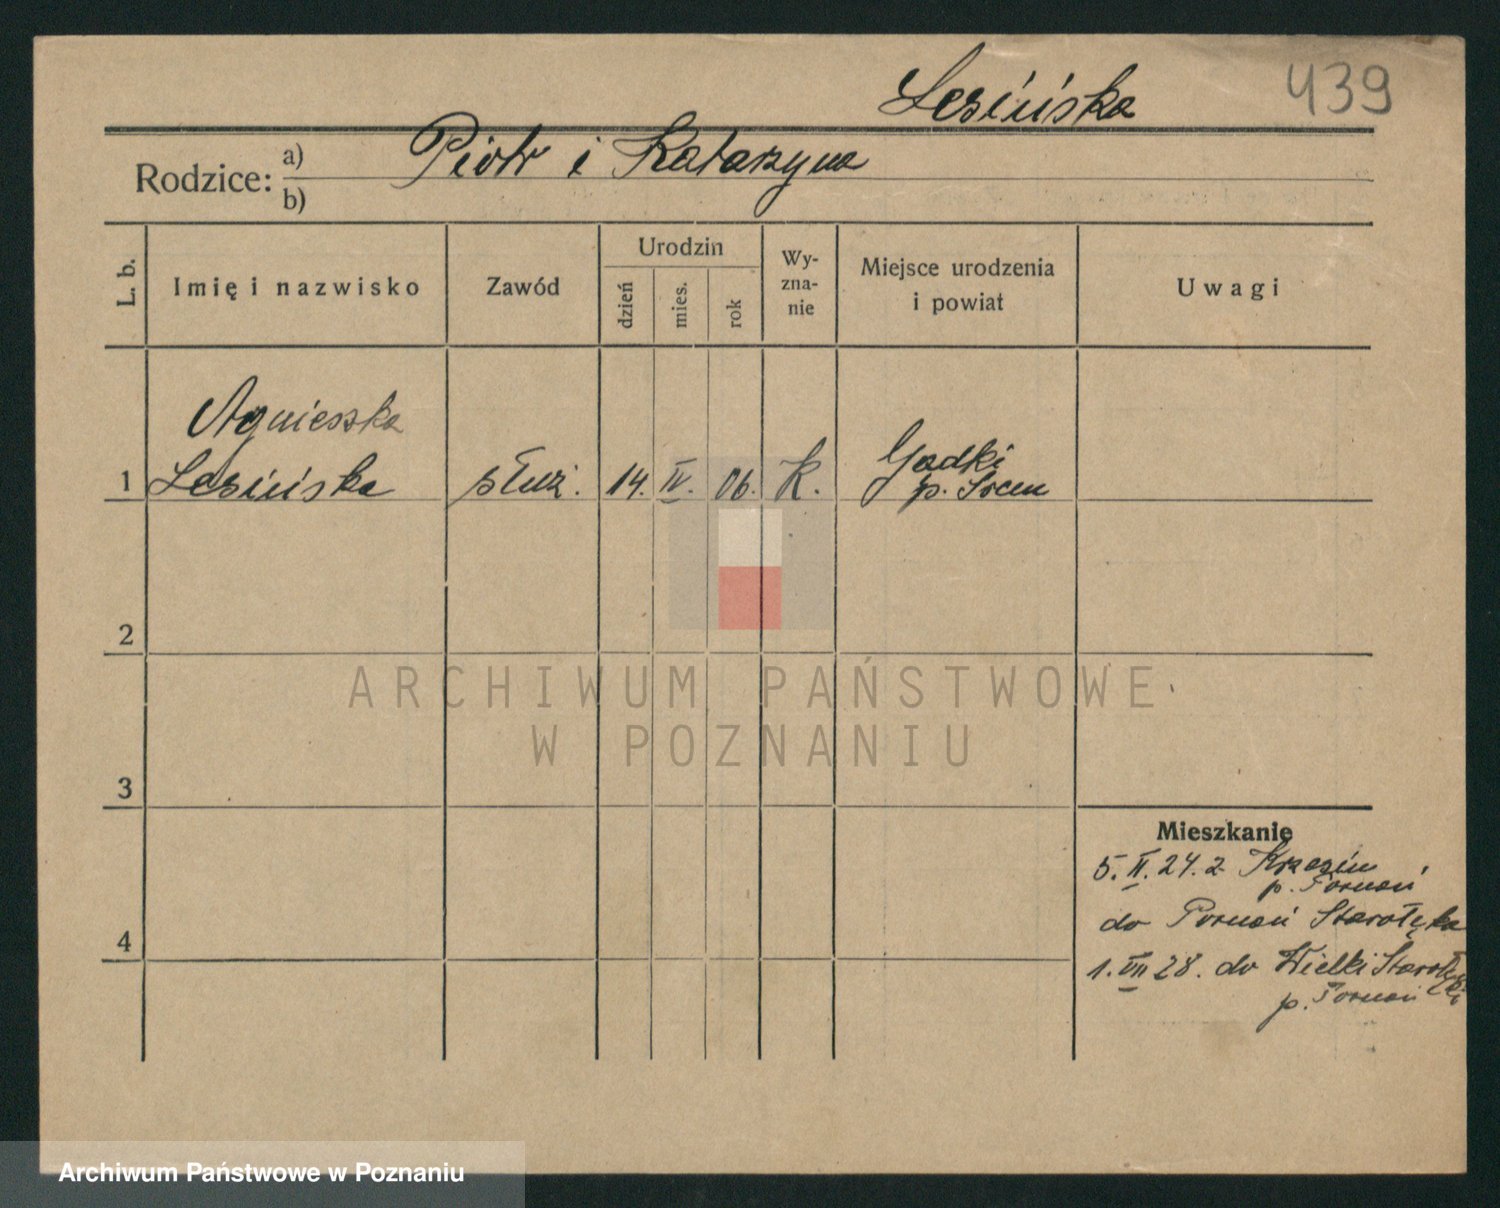 Lesińska
439
Rodzice: a) Piotr i Katarzyna
b)
L. b.
Imię i nazwisko
Zawód
Urodzin
dzień
mies.
rok
Wy-
zna-
nie
Miejsce urodzenia
i powiat
Uwagi
Agnieszka
1 Lesińska służ. 14. IV. 06. K. Gądki
p. Śrem
2
ARCHIWUM PAŃSTWOWE
W POZNANIU
3
Mieszkanie
5. II. 24. z Krzesin
p. Poznań
do Poznań Starołęka
4
1. VII 28. do Wielki Starołęki
p. Poznań
Archiwum Państwowe w Poznaniu